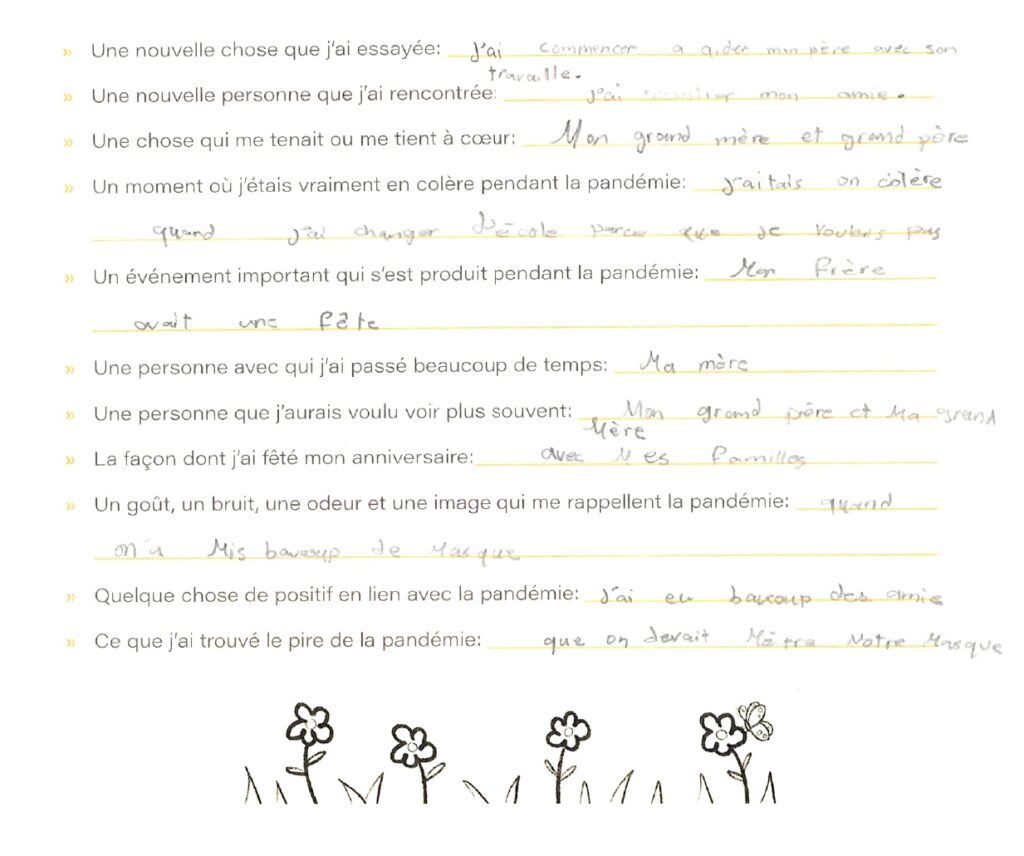 » Une nouvelle chose que j'ai essayée: J'ai commencer a aider mon père avec son
travaille.
» Une nouvelle personne que j'ai rencontrée: J'ai mon amie.
» Une chose qui me tenait ou me tient à cœur: Mon grand mère et grand père
» Un moment où j'étais vraiment en colère pendant la pandémie: J'aitais on colère
quand j'ai changer d'école parce que je voulais pas
» Un événement important qui s'est produit pendant la pandémie: Mon frère
avait une fête
» Une personne avec qui j'ai passé beaucoup de temps: Ma mère
» Une personne que j'aurais voulu voir plus souvent: Mon grand père et Ma grand
Mère
» La façon dont j'ai fêté mon anniversaire: avec Mes familles
» Un goût, un bruit, une odeur et une image qui me rappellent la pandémie: quand
on a Mis baucoup de Masque
» Quelque chose de positif en lien avec la pandémie: J'ai eu baucoup des amie
» Ce que j'ai trouvé le pire de la pandémie: que on devait Mètre Notre Masque